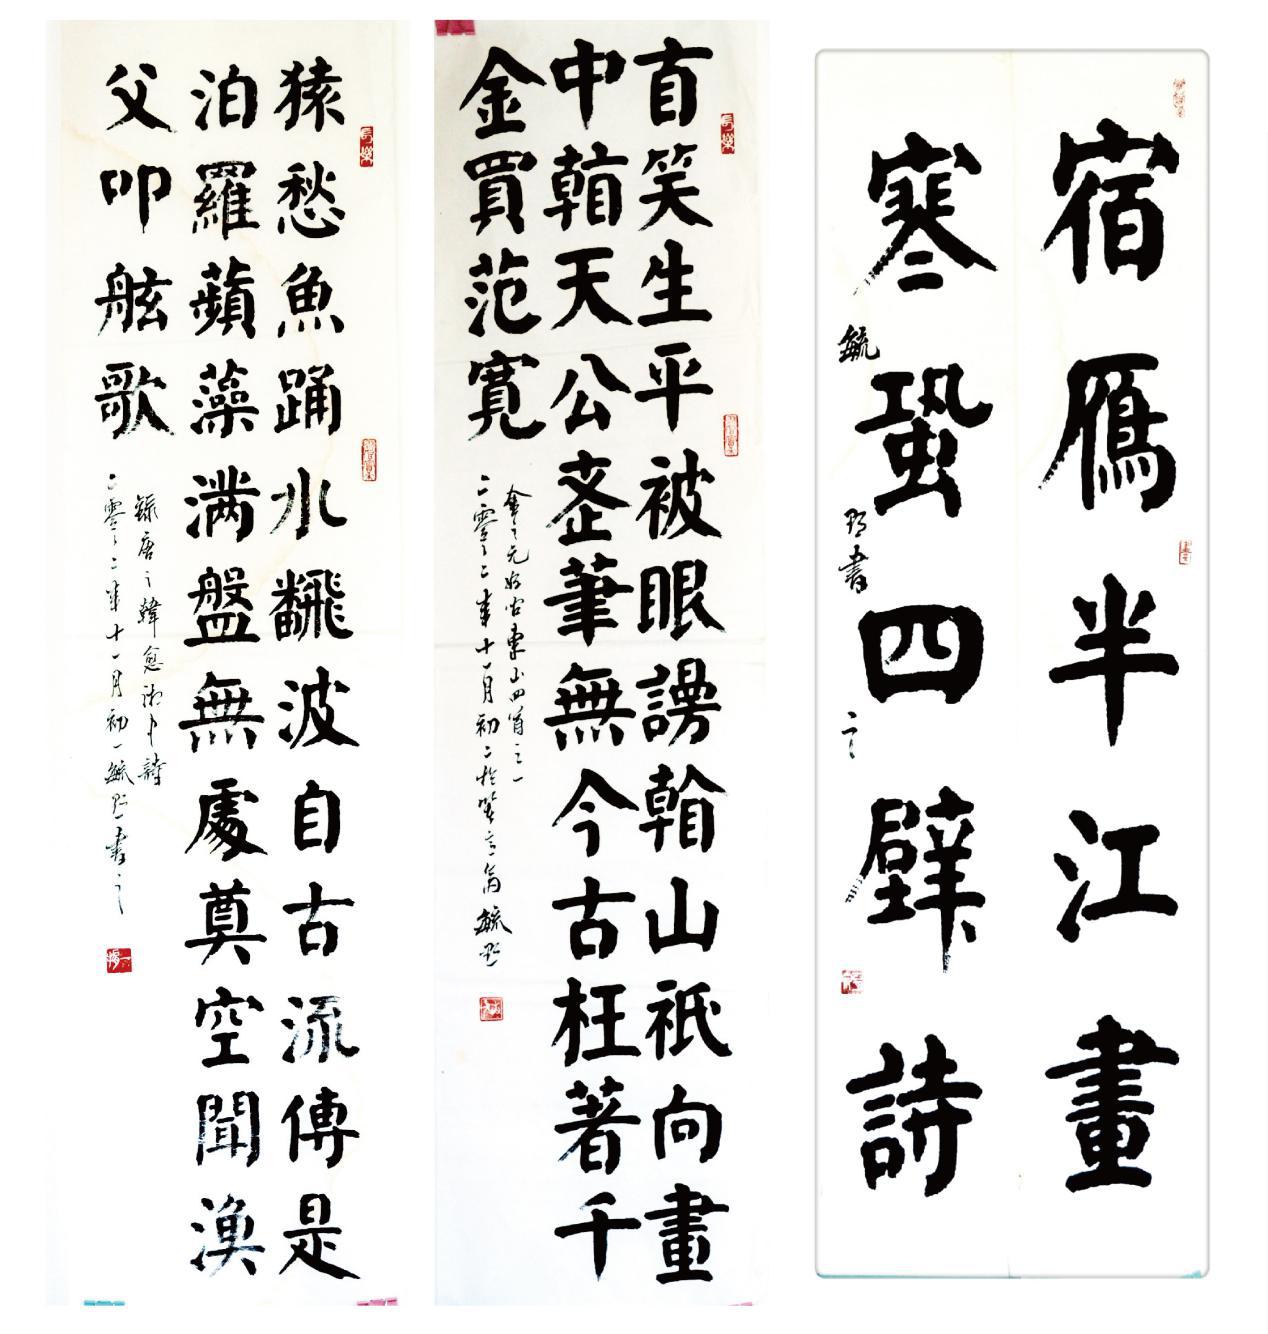 宿雁半江畫
寒蛩四壁詩
自笑生平被眼謾看山祇向畫
中看天公老筆無今古枉著千
金買范寬
金之元好問東山四首之一
二零二二年十一月初二於笑言齋毓
長樂
猿愁魚踊水飜波自古流傳是
汨羅蘋藻满盤無處奠空聞漁
父叩舷歌
錄唐之韓愈湘中詩
二零二二年十一月初一毓書之
長樂